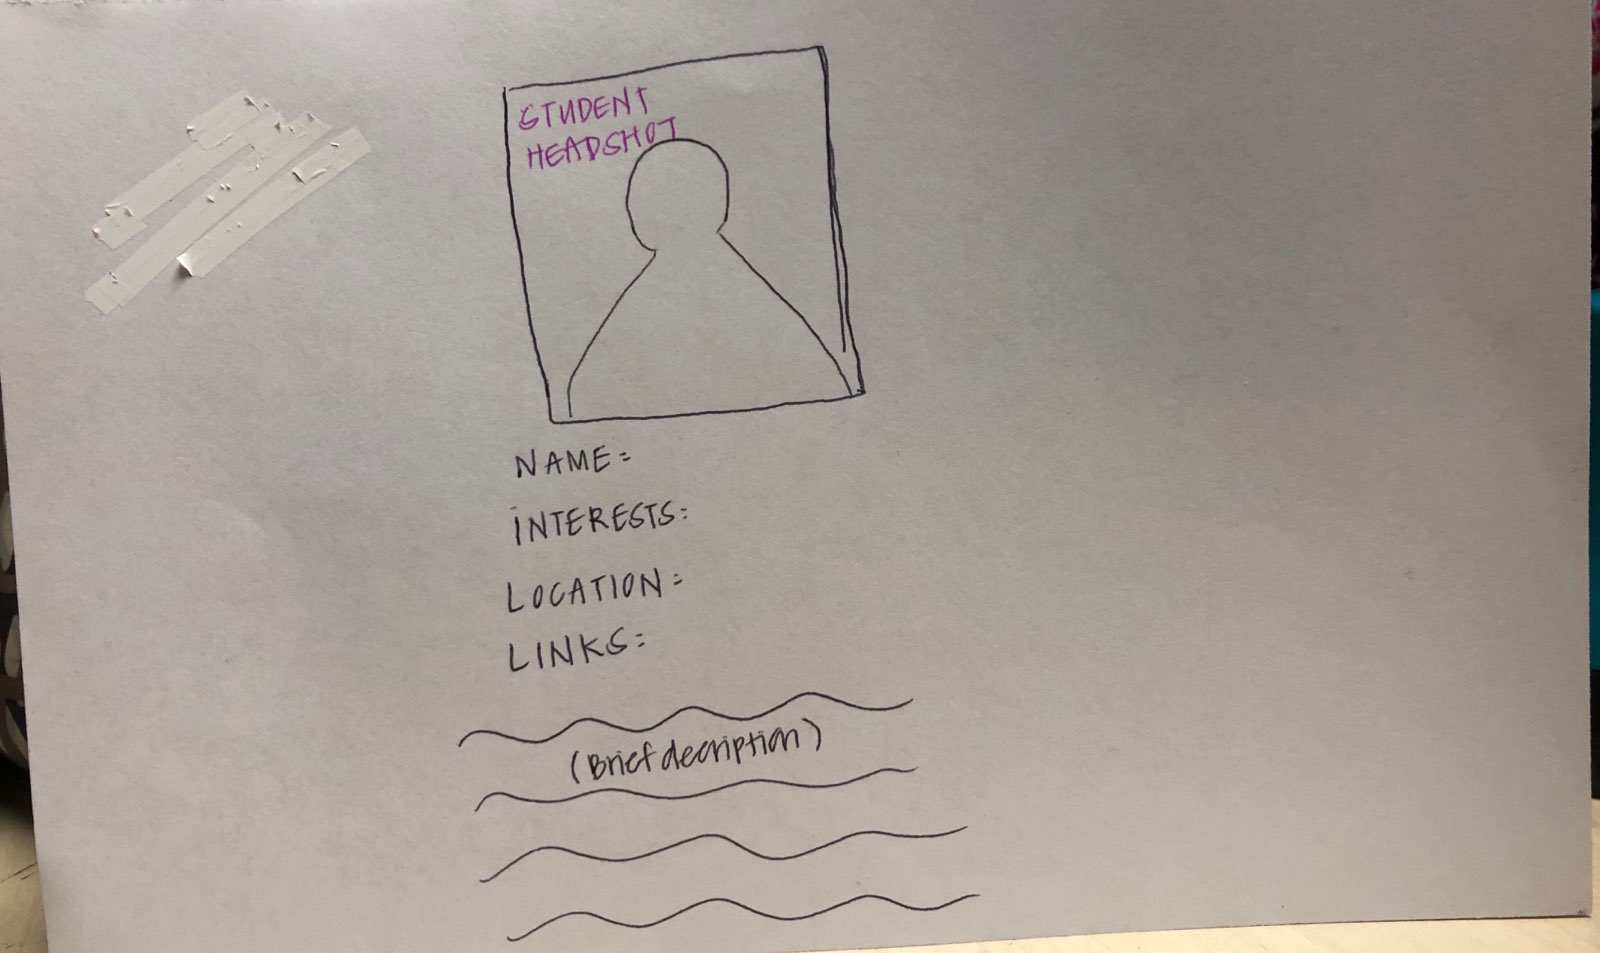 STUDENT
HEADSHOT
NAME:
INTERESTS:
LOCATION:
LINKS:
(Brief decription)